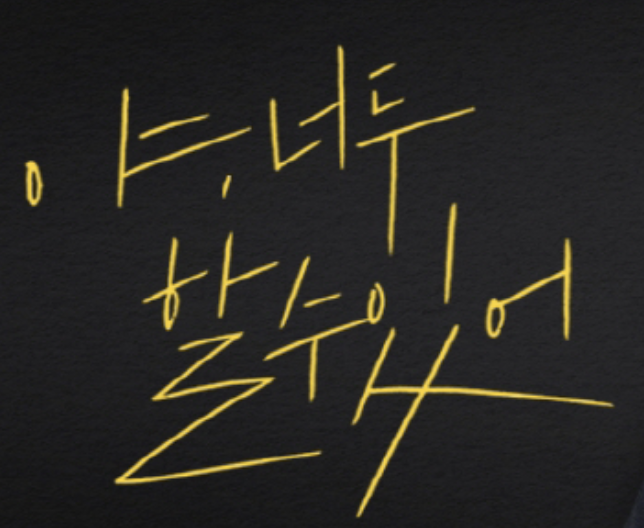 야, 너두
할 수 있어